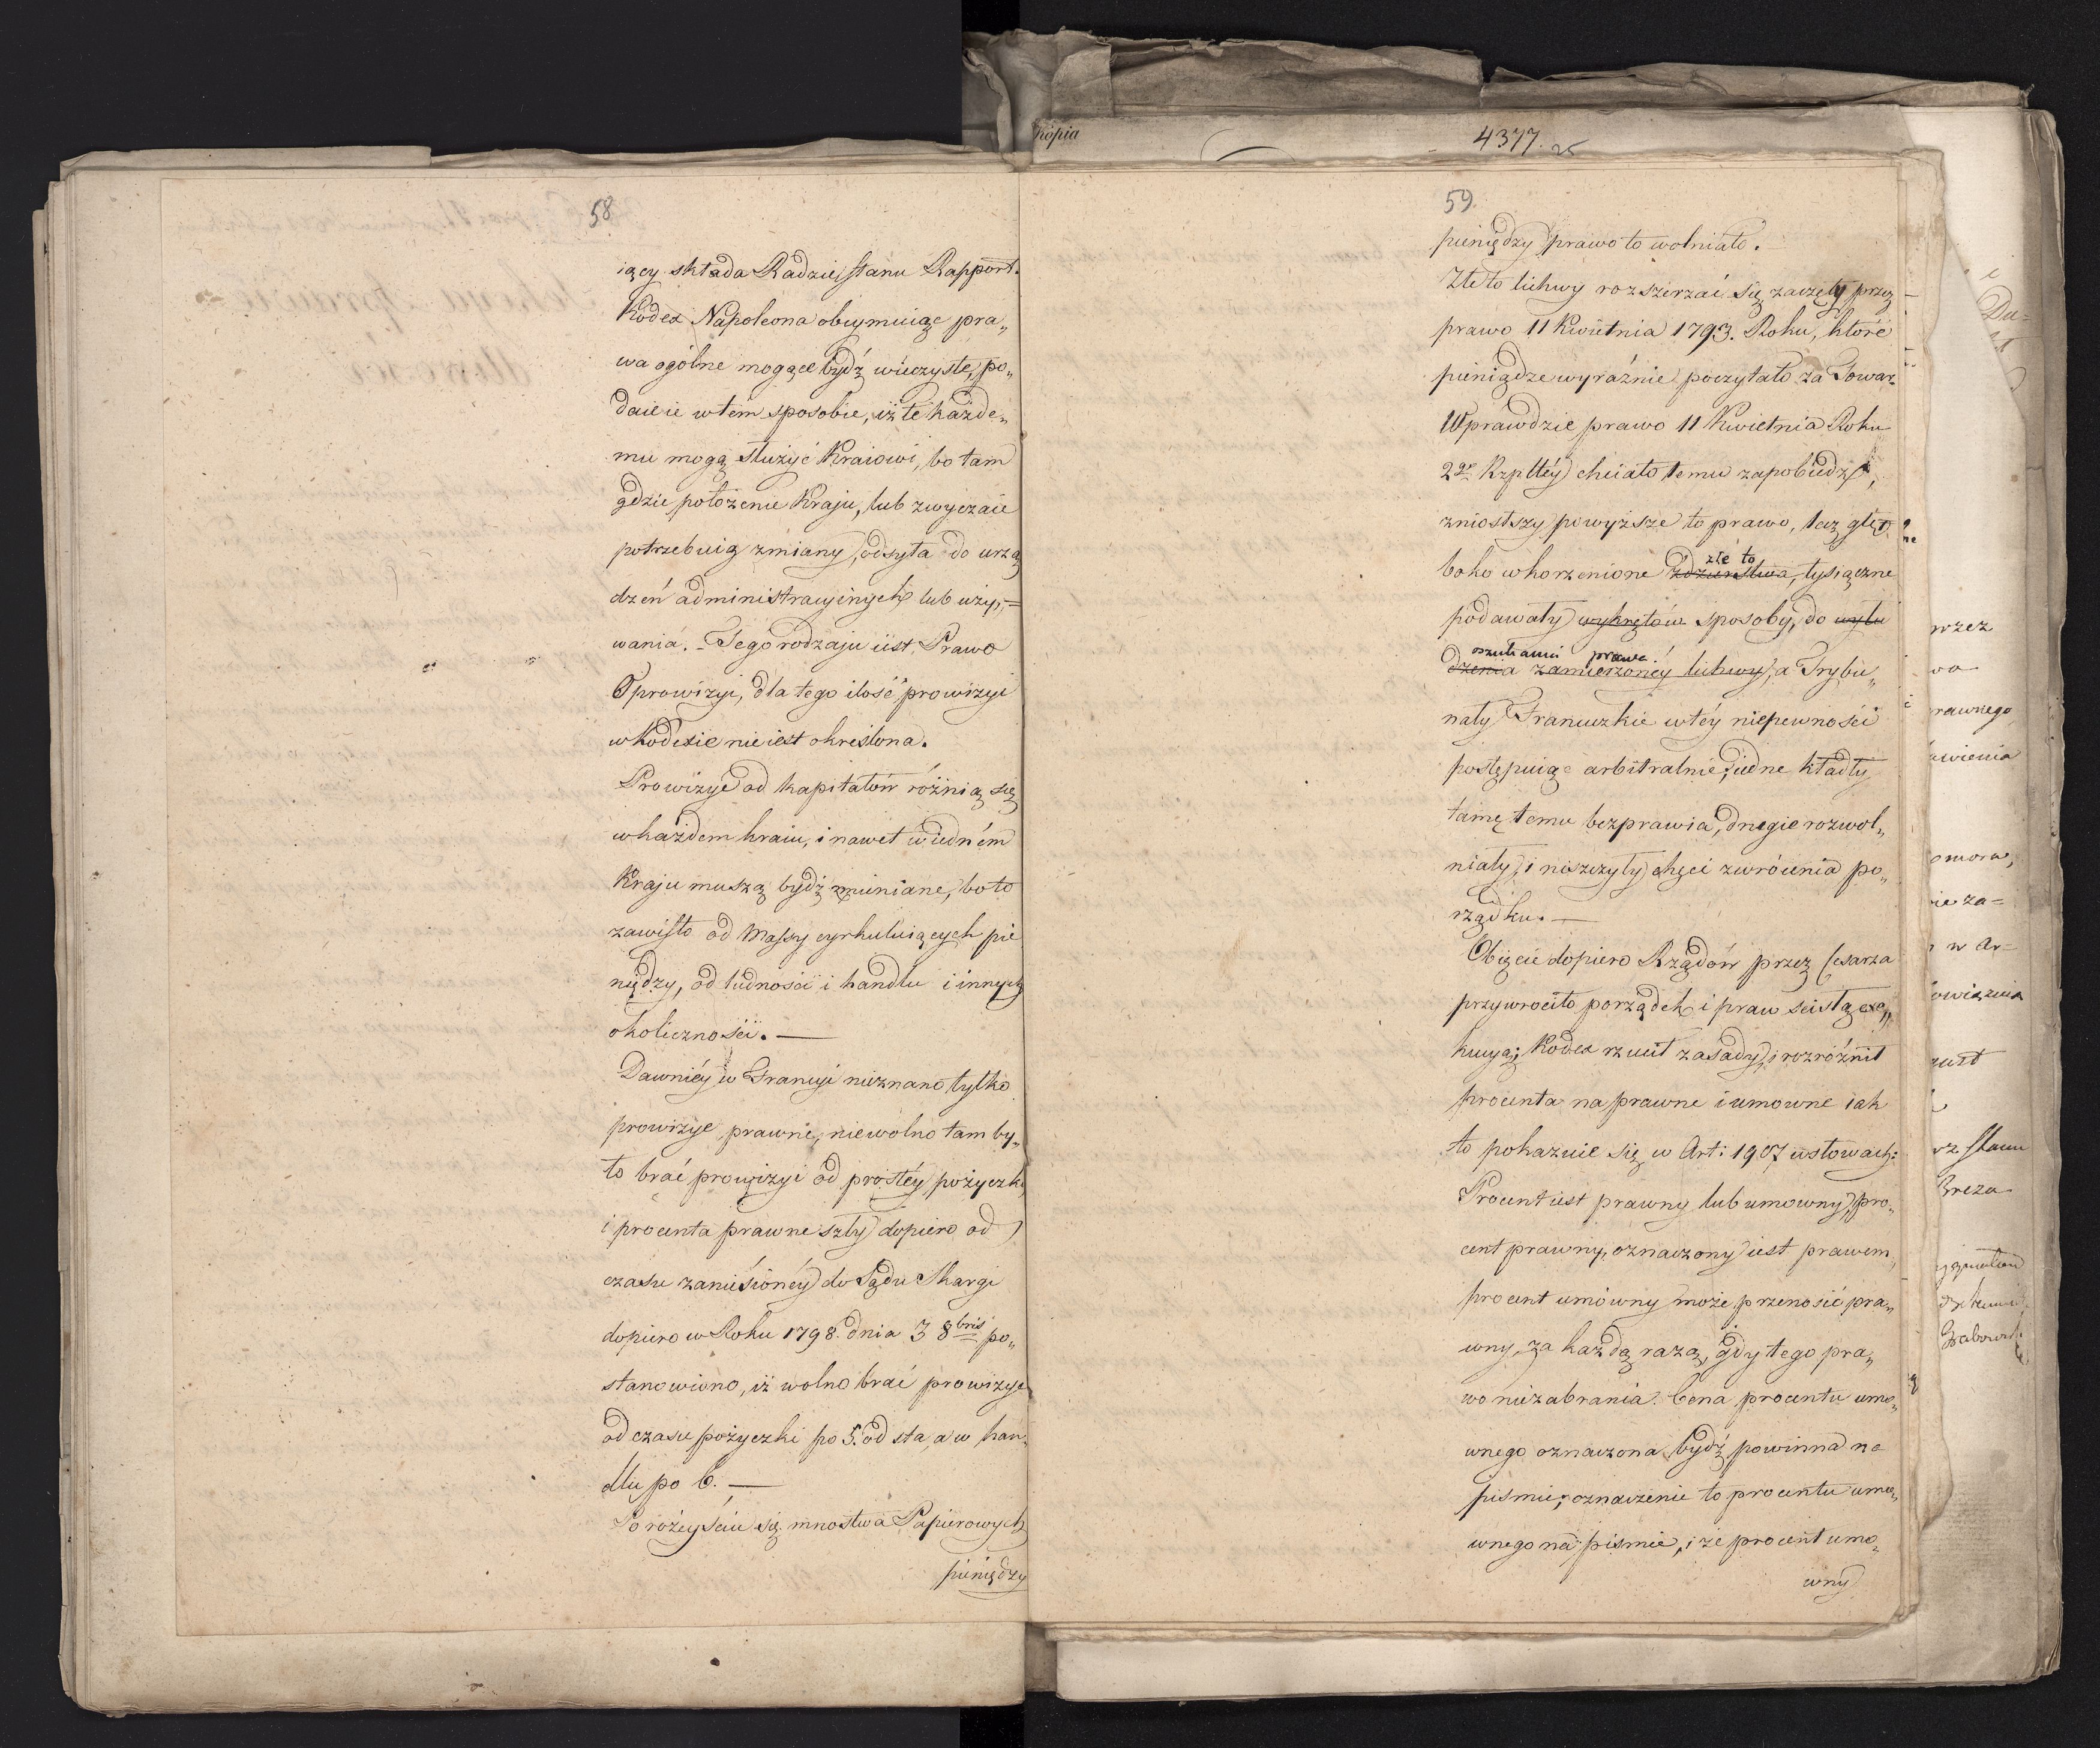 58
iący składa Radzie Stanu Rapport.
Kodex Napoleona obeymuiąc pra„
wa ogólne mogące bydź wieczyste, po„
daie ie w tem sposobie, iż te każde„
mu mogą służyć Kraiowi, bo tam
gdzie położenie Kraju, lub zwyczaie
potrzebuią zmiany, odsyła do urzą
dzeń administracyinych lub uży„
wania. – Tego rodzaju iest Prawo
O prowizyi, dla tego ilość prowizyi
w Kodexie nie iest określona.
Prowizye od kapitałów różnią się
w każdem kraiu, i nawet w iedném
Kraju muszą bydź zmieniane, bo to
zawisło od Massy cyrkuluiących pie
niędzy, od ludności i handlu i innych
okoliczności. —
Dawniéy w Francyi nieznano tylko
prowizye prawne, niewolno tam by„
ło brać prowizyi od prostéy pożyczki
i procenta prawne szły dopiero od
czasu zaniesionéy do Sądu Skargi
dopiero w Roku 1798. dnia 3 8bris po„
stanowiono, iż wolno brać prowizye
od czasu pożyczki po 5. od sta, a w han„
dlu po 6. —
Po rozeyściu się mnostwa Papierowych
pieniędzy
kopia
4377.
59.
pieniędzy prawo to wolniało.
Złe to lichwy rozszerzać się zaczęły przez
prawo 11 Kwietnia 1793. Roku, które
pieniądze wyraźnie poczytało za Towar.
Wprawdzie prawo 11 Kwietnia Roku
2go Rzpltéy chciało temu zapobiedz,
zniosłszy powyższe to prawo, lecz głę
złe to
boko wkorzenione zdzierstwa, tysiączne
podawały wykrętów sposoby, do wyłu
oszukania prawa.
dzenia zamierzonéy lichwy, a Trybu„
nały Francuzkie w téy niepewności
postępuiąc arbitralnie, iedne kładły
tamę temu bezprawia, drugie rozwol„
niały, i niszczyły chęci zwrócenia po„
rządku. —
Obięcie dopiero Rządów przez Cesarza
przywrociło porządek i praw scisłą exe„
kucyą; Kodex rzucił zasady, i rozróżnił
procenta na prawne i umowne iak
to pokazuie się w Art: 1907 w słowach:
Procent iest prawny lub umowny, pro„
cent prawny, oznaczony iest prawem,
procent umówny może przenosić pra„
wny, za każdą razą, gdy tego pra„
wo niezabrania. Cena procentu umo„
wnego oznaczona bydź powinna na
piśmie; oznaczenie to procentu umo„
wnego na piśmie, i że procent umo„
wny
Stanu
Breza